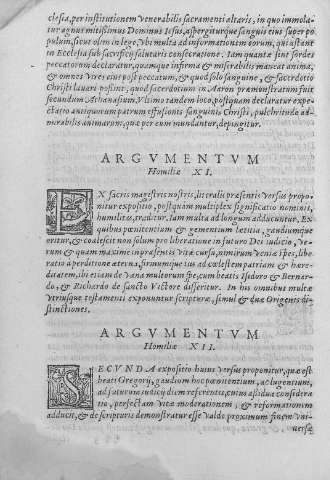 clesia, per institutionem venerabilis sacramenti altaris, in quo immola-
tur agnus mitissimus Dominus Iesus, aspergiturque sanguis eius super po
pulum, sicut olim in lege, Vbi multa ad informationem eorum, qui astant
in Ecclesia sub sacrificij salutaris consecratione. Iam quanta sint sordes
peccatorum declaratur, quamque infirma & miserabilis maneat anima,
& omnes vires eius post peccatum, & quod solo sanguine, & sacerdotio
Christi lavari possint, quod sacerdotium in Aaron præmonstratum fuit
secundum Athanasium, Vltimo tandem loco, postquam declaratur expe-
ctatio antiquorum patrum effusionis sanguinis Christi, pulchritudo ad-
mirabilis animarum, quæ per eum mundantur, depingitur.
ARGVMENTVM
Homiliæ XI.
EX sacris magistris nostris, literalis præsentis versus propo-
nitur expositio, postquam multiplex significatio nominis,
humilitas, traditur. Iam multa ad longum adducuntur, Ex
quibus pœnitentium & gementium letitia, gaudiumque
oritur, & coalescit non solum pro liberatione in futuro Dei iudicio, ve-
rum & quam maxime in præsentis vitæ cursu, nimirum veniæ spes, libe
ratio a perditione æterna, firmumque ius ad cœlestem patriam & hære-
ditatem, ibi etiam de vana multorum spe, cum beatis Isidoro & Bernar-
do, & Richardo de sancto Victore disseritur. In his omnibus multæ
vtriusque testamenti exponuntur scripturæ, simul & duæ Origenis di-
stinctiones.
ARGVMENTVM
Homiliæ XII.
SECVNDA expositio huius versus proponitur, quæ est
beati Gregorij, gaudium hoc pœnitentium, ac lugentium,
ad futurum iudicij diem referentis, cum assidua considera
tio, perfectam vitæ moderationem, & reformationem
adducit, & de scripturis demonstratur esse valde proximum finem vni-
versæ